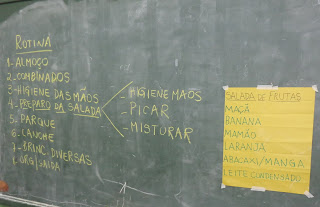 ROTINA
1- ALMOÇO
2- COMBINADOS
3- HIGIENE DAS MÃOS
4- PREPARO DA SALADA
5- PARQUE
6- LANCHE
7- BRINC. DIVERSAS
8- ORG/SAÍDA
- HIGIENE MÃOS
- PICAR
- MISTURAR
SALADA DE FRUTAS
MAÇÃ
BANANA
MAMÃO
LARANJA
ABACAXI/MANGA
LEITE CONDENSADO